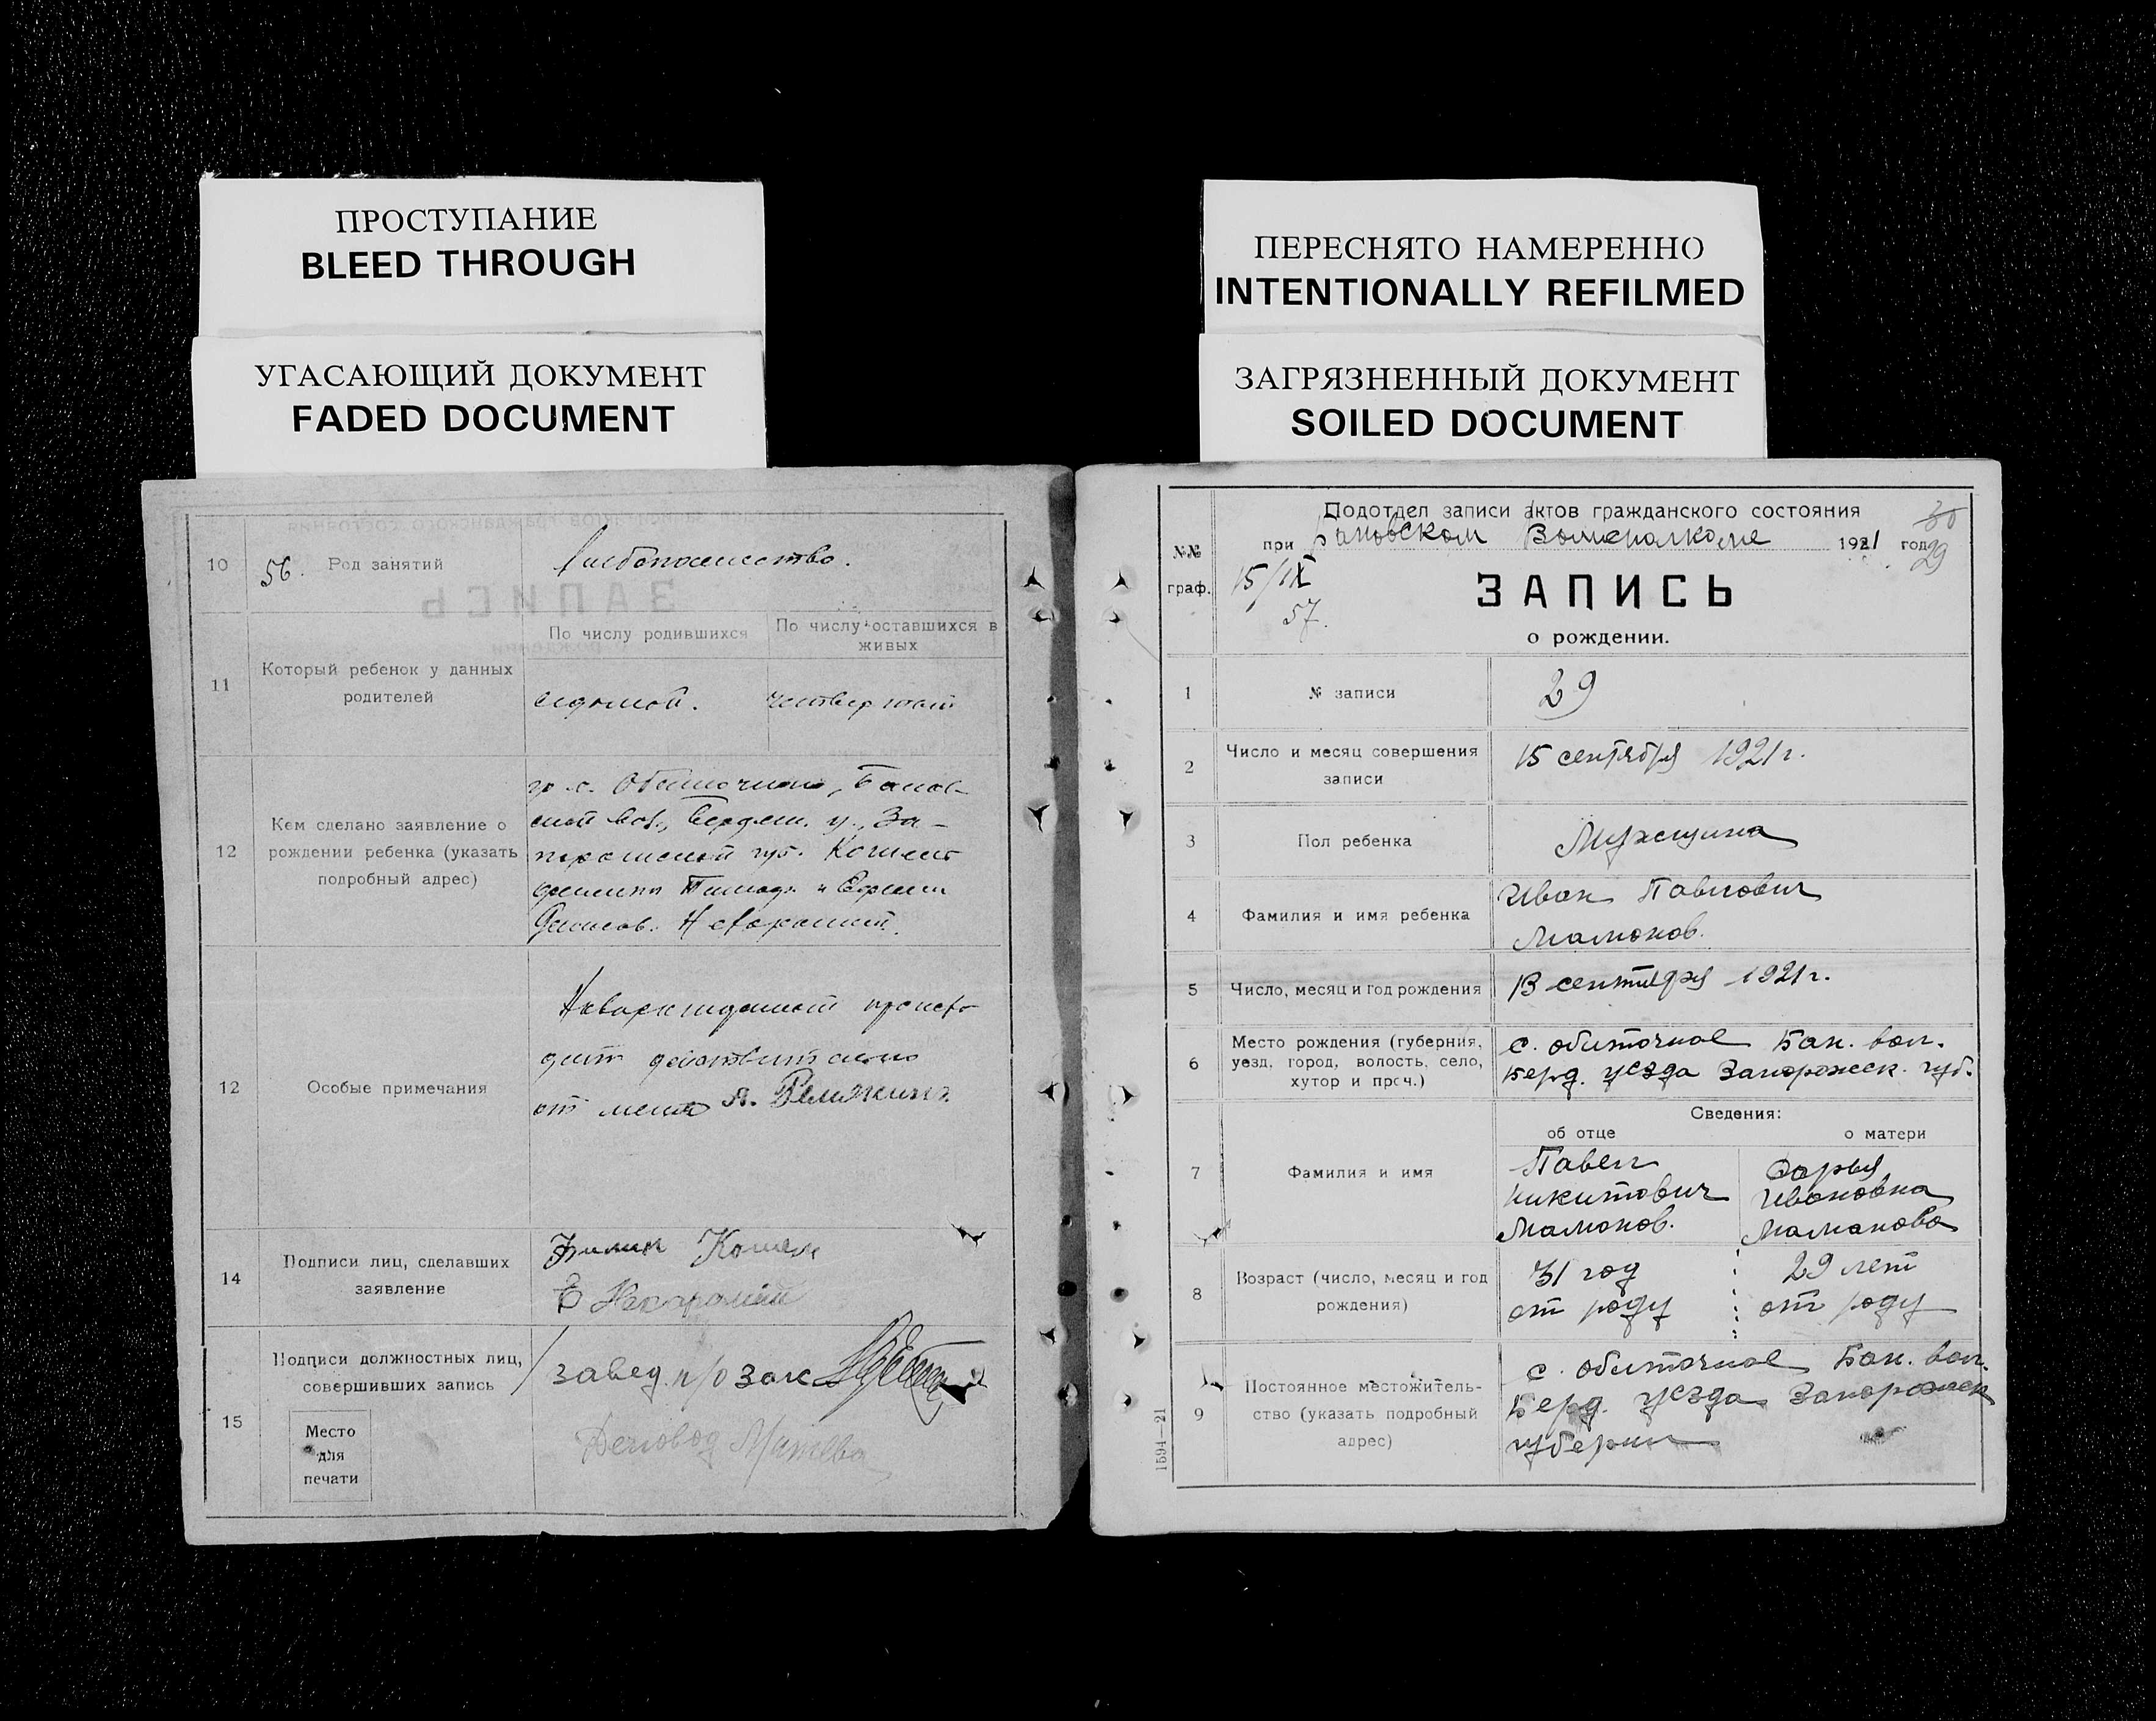 ПРОСТУПАНИЕ
BLEED THROUGH
УГАСАЮЩИЙ ДОКУМЕНТ
FADED DOCUMENT
ПЕРЕСНЯТО НАМЕРЕННО
INTENTIONALLY REFILMED
ЗАГРЯЗНЕННЫЙ ДОКУМЕНТ
SOILED DOCUMENT
10
56.
Род занятий
11
Который ребенок у данных
родителей
По числу родившихся
По числу оставшихся в
живых
седьмой.
четвертый
12
Кем сделано заявление о
рождении ребенка (указать
подробный адрес)
гр. с. Обиточного, Банов-
ской вол., Бердян. у., За-
порожской губ.
12
Особые примечания
от меня А.
14
Подписи лиц, сделавших
заявление
15
Подписи должностных лиц,
совершивших запись
Место
для
печати
завед. п/о загс
Деловод
№№
граф.
Подотдел записи актов гражданского состояния
при Бановском Волисполкоме 1921 год
30
29
15/IX
57.
ЗАПИСЬ
о рождении.
1
№ записи
29
2
Число и месяц совершения
записи
15 сентября 1921 г.
3
Пол ребенка
Мужщина
4
Фамилия и имя ребенка
Иван Павлович
Мамонов.
5
Число, месяц и год рождения
13 сентября 1921 г.
6
Место рождения (губерния,
уезд, город, волость, село,
хутор и проч.)
с. Обиточное Бан. вол.
Берд. уезда Запорожск. губ.
Сведения:
об отце
о матери
7
Фамилия и имя
Павел
Никитович
Мамонов.
Дарья
Ивановна
Маманова
8
Возраст (число, месяц и год
рождения)
31 год
от роду
29 лет
от роду
9
Постоянное местожитель-
ство (указать подробный
адрес)
с. Обиточное Бан. вол.
Берд. уезда Запорожск
губерии
1594—21